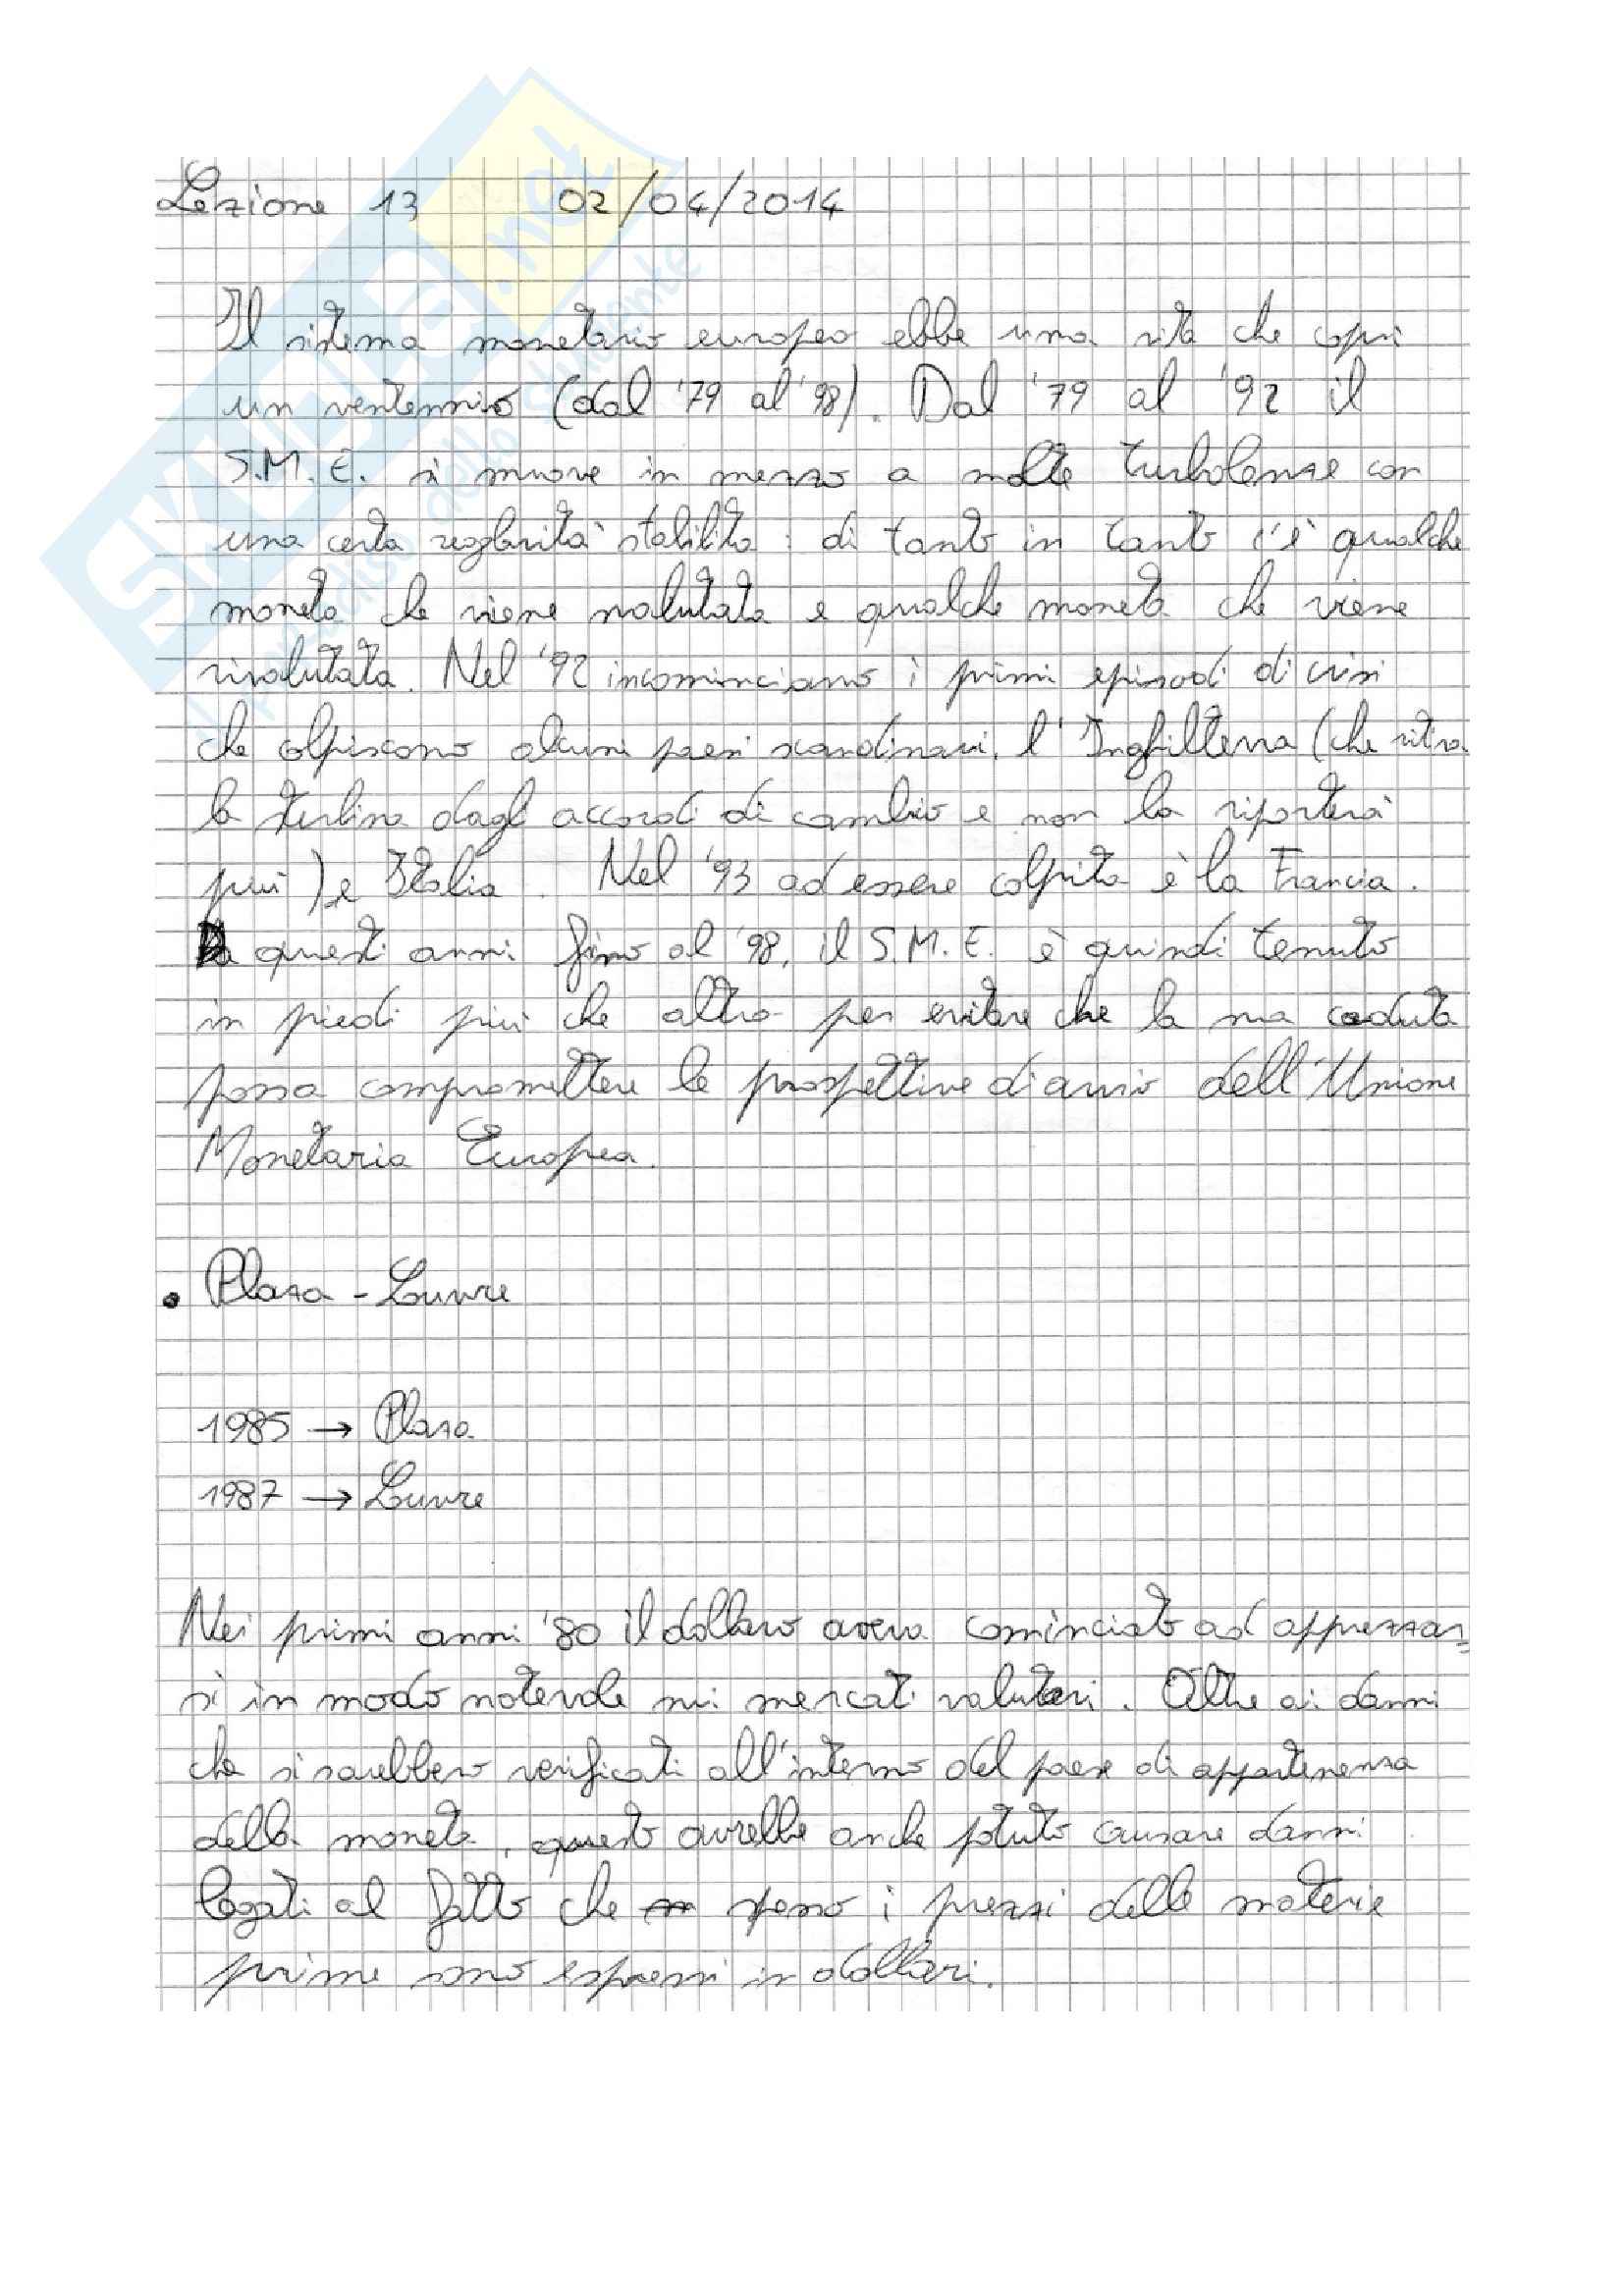 Lezione 13 02/04/2014
Il sistema monetario europeo ebbe una vita che coprì
un ventennio (dal '79 al '98). Dal '79 al '92 il
S.M.E. si muove in mezzo a molte turbolenze con
una certa regolarità stabilita: di tanto in tanto c'è qualche
moneta che viene svalutata e qualche moneta che viene
rivalutata. Nel '92 incominciano i primi episodi di crisi
che colpiscono alcuni paesi scandinavi, l'Inghilterra (che ritira
la sterlina dagli accordi di cambio e non la riporterà
più) e Italia. Nel '93 ad essere colpita è la Francia.
Da questi anni fino al '98, il S.M.E. è quindi tenuto
in piedi più che altro per evitare che la sua caduta
possa compromettere le prospettive di avvio dell'Unione
Monetaria Europea.
• Plaza - Louvre
1985 → Plaza
1987 → Louvre
Nei primi anni '80 il dollaro aveva cominciato ad apprezzar=
si in modo notevole sui mercati valutari. Oltre ai danni
che si sarebbero verificati all'interno del paese di appartenenza
della moneta, questo avrebbe anche potuto causare danni
legati al fatto che spesso i prezzi delle materie
prime sono espressi in dollari.
SKUOLA.net
il paradiso dello studente